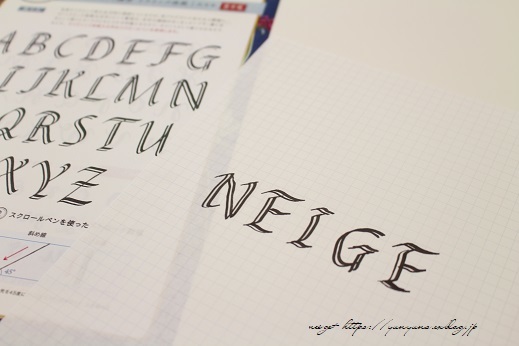 ABCDEFG
IJKLMN
QRSTU
XYZ
スクロールペンを使った
斜め線
45°
NEIGE
neige+ https://yunyuns.exblog.jp